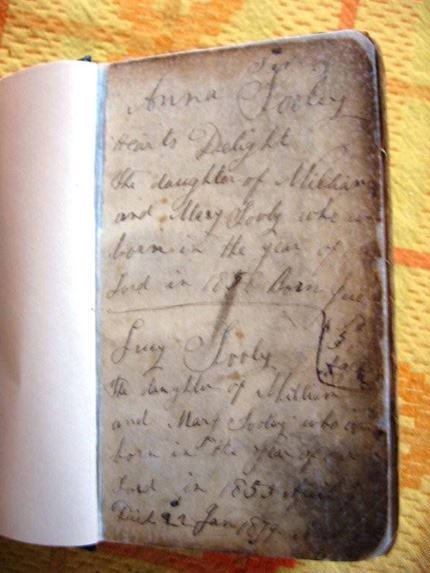 Anna Sooley
Hearts Delight
the daughter of William
and Mary Sooly who
born in the year of
Lord in 1856 Born
Lucy Sooley
the daughter of William
and Mary Sooley who
born in the year of our
Lord in 1853 April
Died 22 Jan 1879